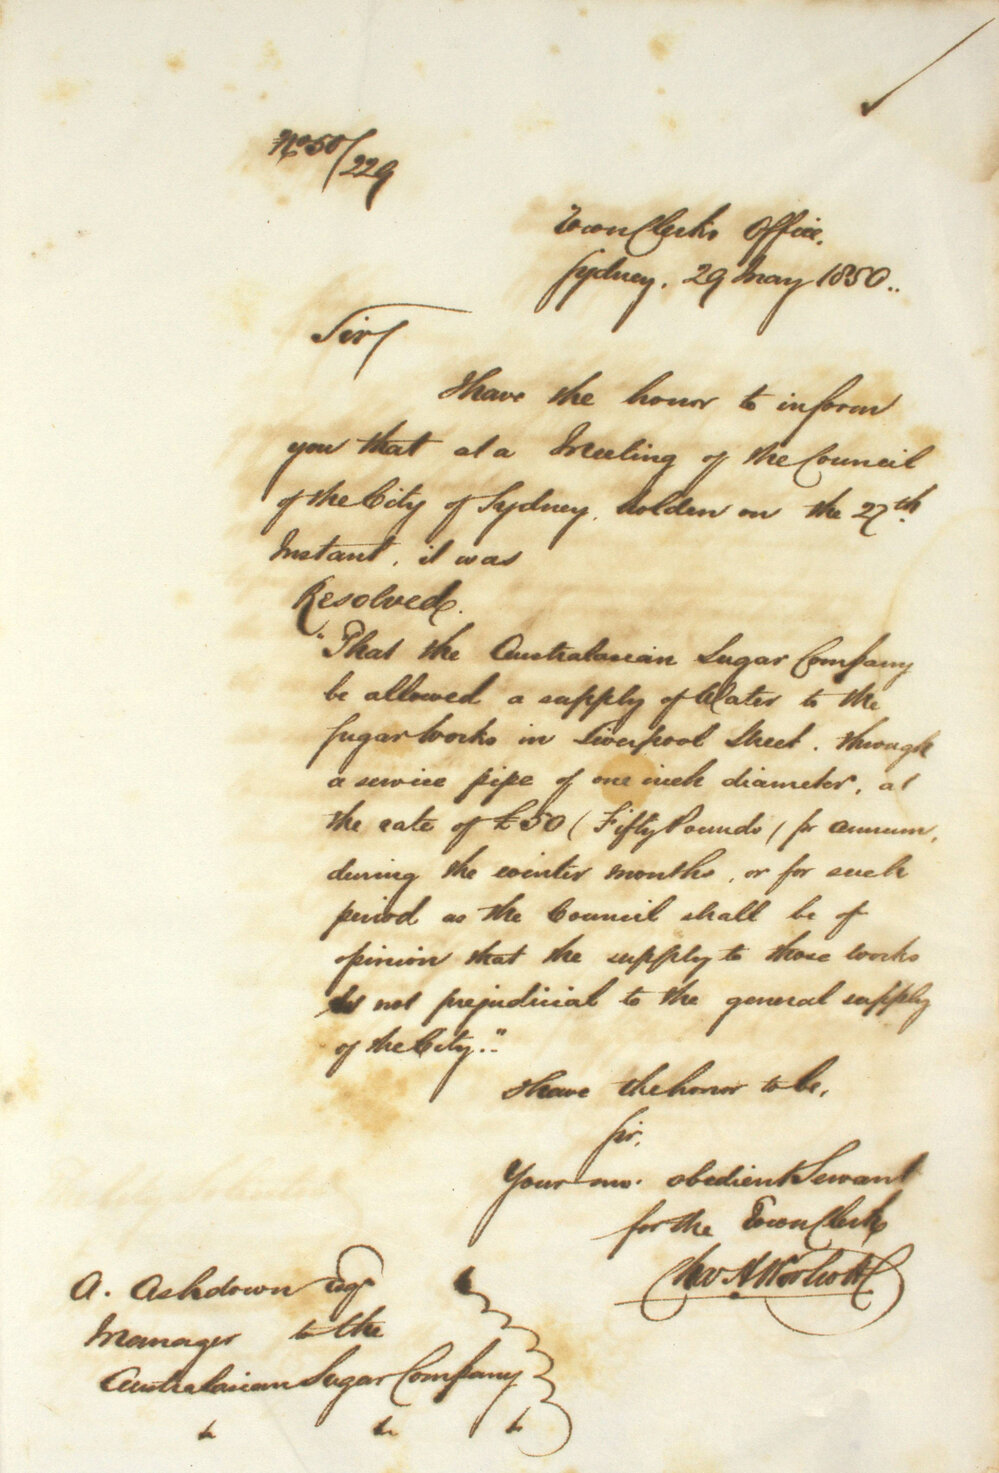 No 50/229
Town Clerk's Office.
Sydney, 29 May 1850..
Sir
I have the honor to inform
you that at a Meeting of the Council
of the City of Sydney, holden on the 27th
Instant, it was
Resolved.
"That the Australasian Sugar Company
be allowed a supply of Water to the
Sugar Works in Liverpool Street. through
a service pipe of one inch diameter, at
the rate of £50 (Fifty Pounds) pr annum,
during the winter months, or for such
period as the Council shall be of
opinion that the supply to those works
is not prejudicial to the general supply
of the City."
I have the honor to be,
Sir,
Your mo. obedient Servant
for the Town Clerk
A. Ashdown Esqr
Manager to the
Australasian Sugar Company